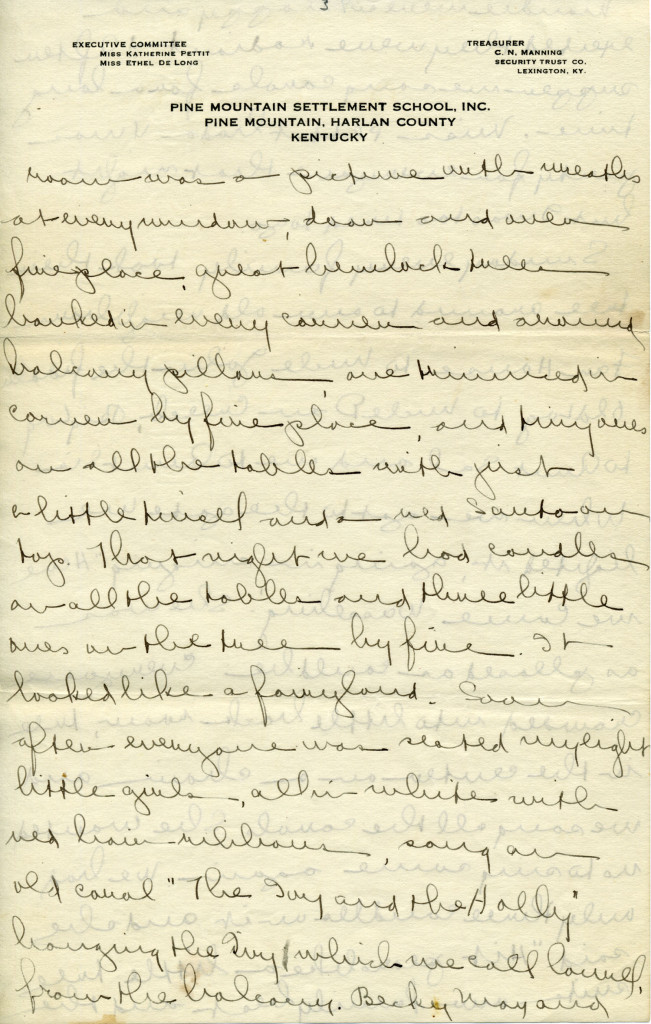 3
EXECUTIVE COMMITTEE
MISS KATHERINE PETTIT
MISS ETHEL DE LONG
TREASURER
C. N. MANNING
SECURITY TRUST CO.
LEXINGTON, KY.
PINE MOUNTAIN SETTLEMENT SCHOOL, INC.
PINE MOUNTAIN, HARLAN COUNTY
KENTUCKY
room was a picture with wreaths
at every window, door and over
fireplace, great hemlock trees
banked in every corner and around
balcony pillars, one trimmed in
corner by fire place, and tiny ones
on all the tables with just
a little tinsel and a red Santa on
top. That night we had candles
on all the tables and three little
ones on the tree by fire. It
looked like a fairyland. Soon
after everyone was seated my eight
little girls, all in white with
red hair-ribbons, sang an
old carol "The Ivy and the Holly"
hanging the Ivy, which we call laurel,
from the balcony. Becky May and